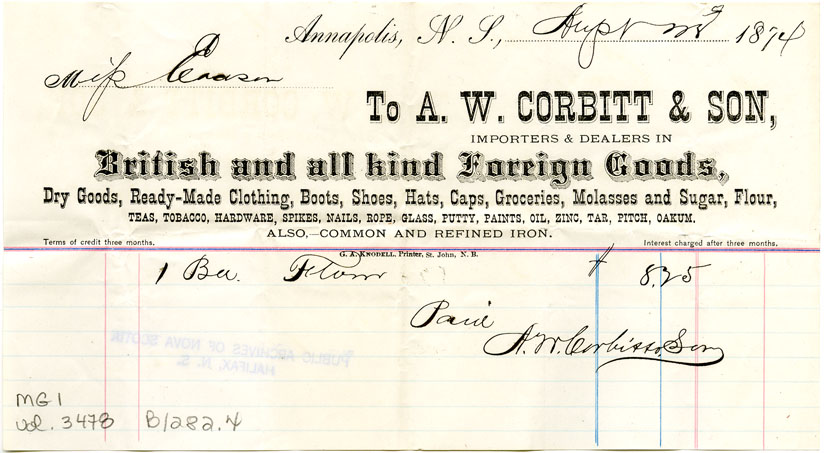 Annapolis, N. S., Augst 22d 1874
Miss Eaason
To A. W. CORBITT & SON,
IMPORTERS & DEALERS IN
British and all kind Foreign Goods,
Dry Goods, Ready-Made Clothing, Boots, Shoes, Hats, Caps, Groceries, Molasses and Sugar, Flour,
TEAS, TOBACCO, HARDWARE, SPIKES, NAILS, ROPE, GLASS, PUTTY, PAINTS, OIL, ZINC, TAR, PITCH, OAKUM.
ALSO,—COMMON AND REFINED IRON.
Terms of credit three months. Interest charged after three months.
G. A. KNODELL, Printer, St. John, N. B.
1 Flour 8.25
Paid
A. W. Corbitt & Son
PUBLIC ARCHIVES OF NOVA SCOTIA
HALIFAX, N. S.
MG1
vol. 3478 B1282.4